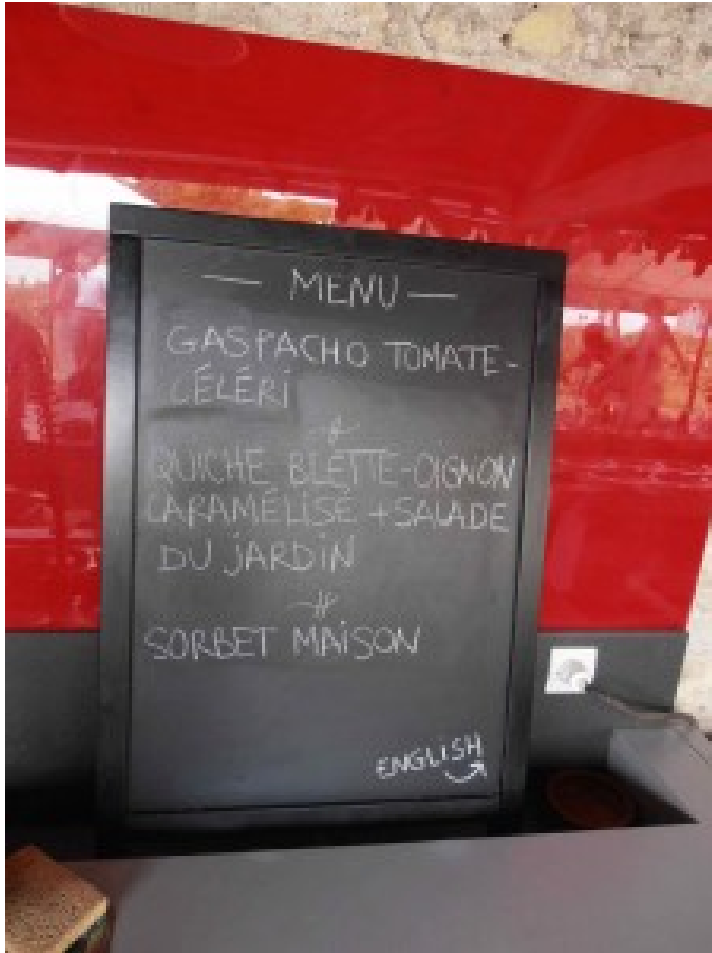 — MENU —
GASPACHO TOMATE-
CÉLÉRI
QUICHE BLETTE-OIGNON
CARAMÉLISÉ + SALADE
DU JARDIN
SORBET MAISON
ENGLISH